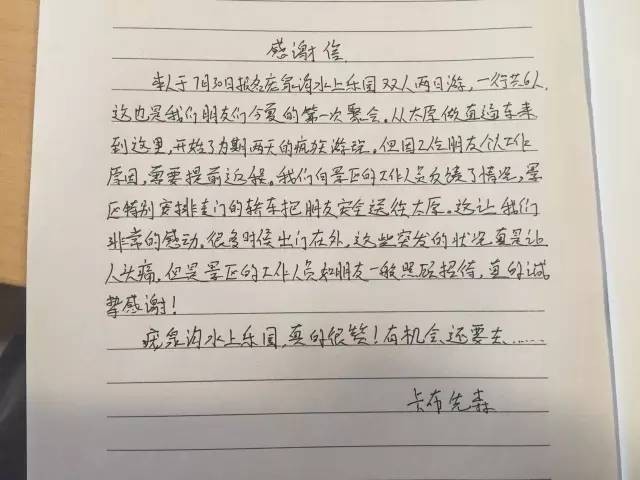 感谢信
本人于7月30日报名庞泉沟水上乐园双人两日游，一行共6人，
这也是我们朋友们今夏的第一次聚会。从太原做直通车来
到这里，开始了为期两天的疯族游玩。但因2位朋友个人工作
原因，需要提前返程。我们向景区的工作人员反馈了情况，景
区特别安排专门的轿车把朋友安全送往太原。这让我们
非常的感动，很多时候出门在外，这些突发的状况真是让
人头痛，但是景区的工作人员和朋友一般照顾招待，真的诚
挚感谢！
庞泉沟水上乐园，真的很赞！有机会还要去……
卡布先森